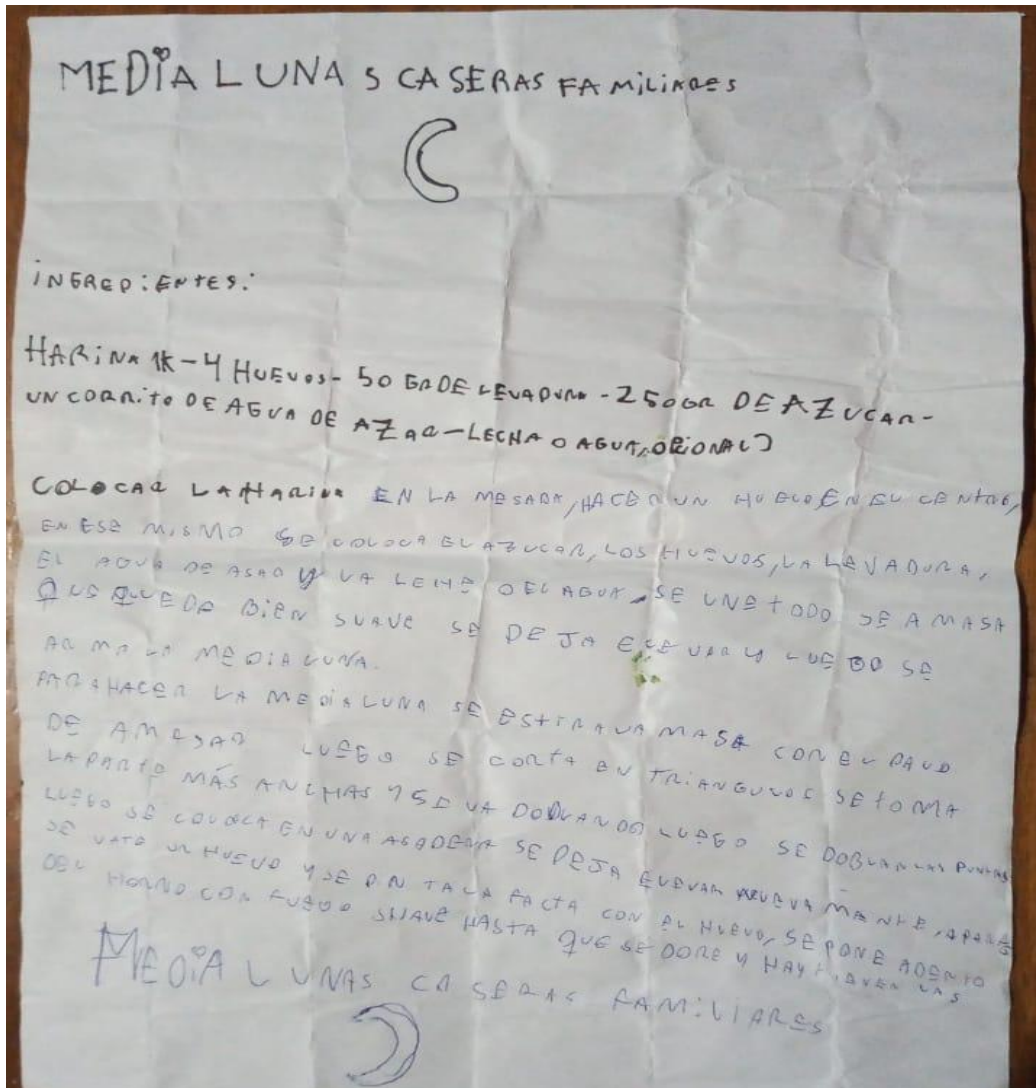 MEDIALUNAS CASERAS FAMILIARES
INGREDIENTES:
HARINA 1K - 4 HUEVOS - 50 GR DE LEVADURA - 250GR DE AZUCAR -
UN CORRITO DE AGUA DE AZAR - LECHA O AGUA, OPIONAL)
COLOCAR LA HARINA EN LA MESADA, HACER UN HUECO, EN EL CENTRO,
EN ESE MISMO SE COLOCA EL AZUCAR, LOS HUEVOS, LA LEVADURA,
EL AGUA DE ASAR Y LA LECHE O EL AGUA. SE UNE TODO SE AMASA
QUE QUEDA BIEN SUAVE SE DEJA ELEVAR Y LUEGO SE
ARMA LA MEDIALUNA.
PARA HACER LA MEDIALUNA SE ESTIRA LA MASA CON EL PALO
DE AMASAR LUEGO SE CORTA EN TRIANGULOS SE TOMA
LA PARTE MÁS ANCHAS Y SE VA DOBLANDO LUEGO SE DOBLAN LAS PUNTAS
LUEGO SE COLOCA EN UNA ASADERA SE DEJA ELEVAR NUEVAMANTE, APARTE
SE VATE UN HUEVO Y SE PINTA LA FACTA CON EL HUEVO, SE PONE ADENTO
DEL HORNO CON FUEGO SUAVE HASTA QUE SE DORE Y HAY LAS
MEDIALUNAS CASERAS FAMILIARES